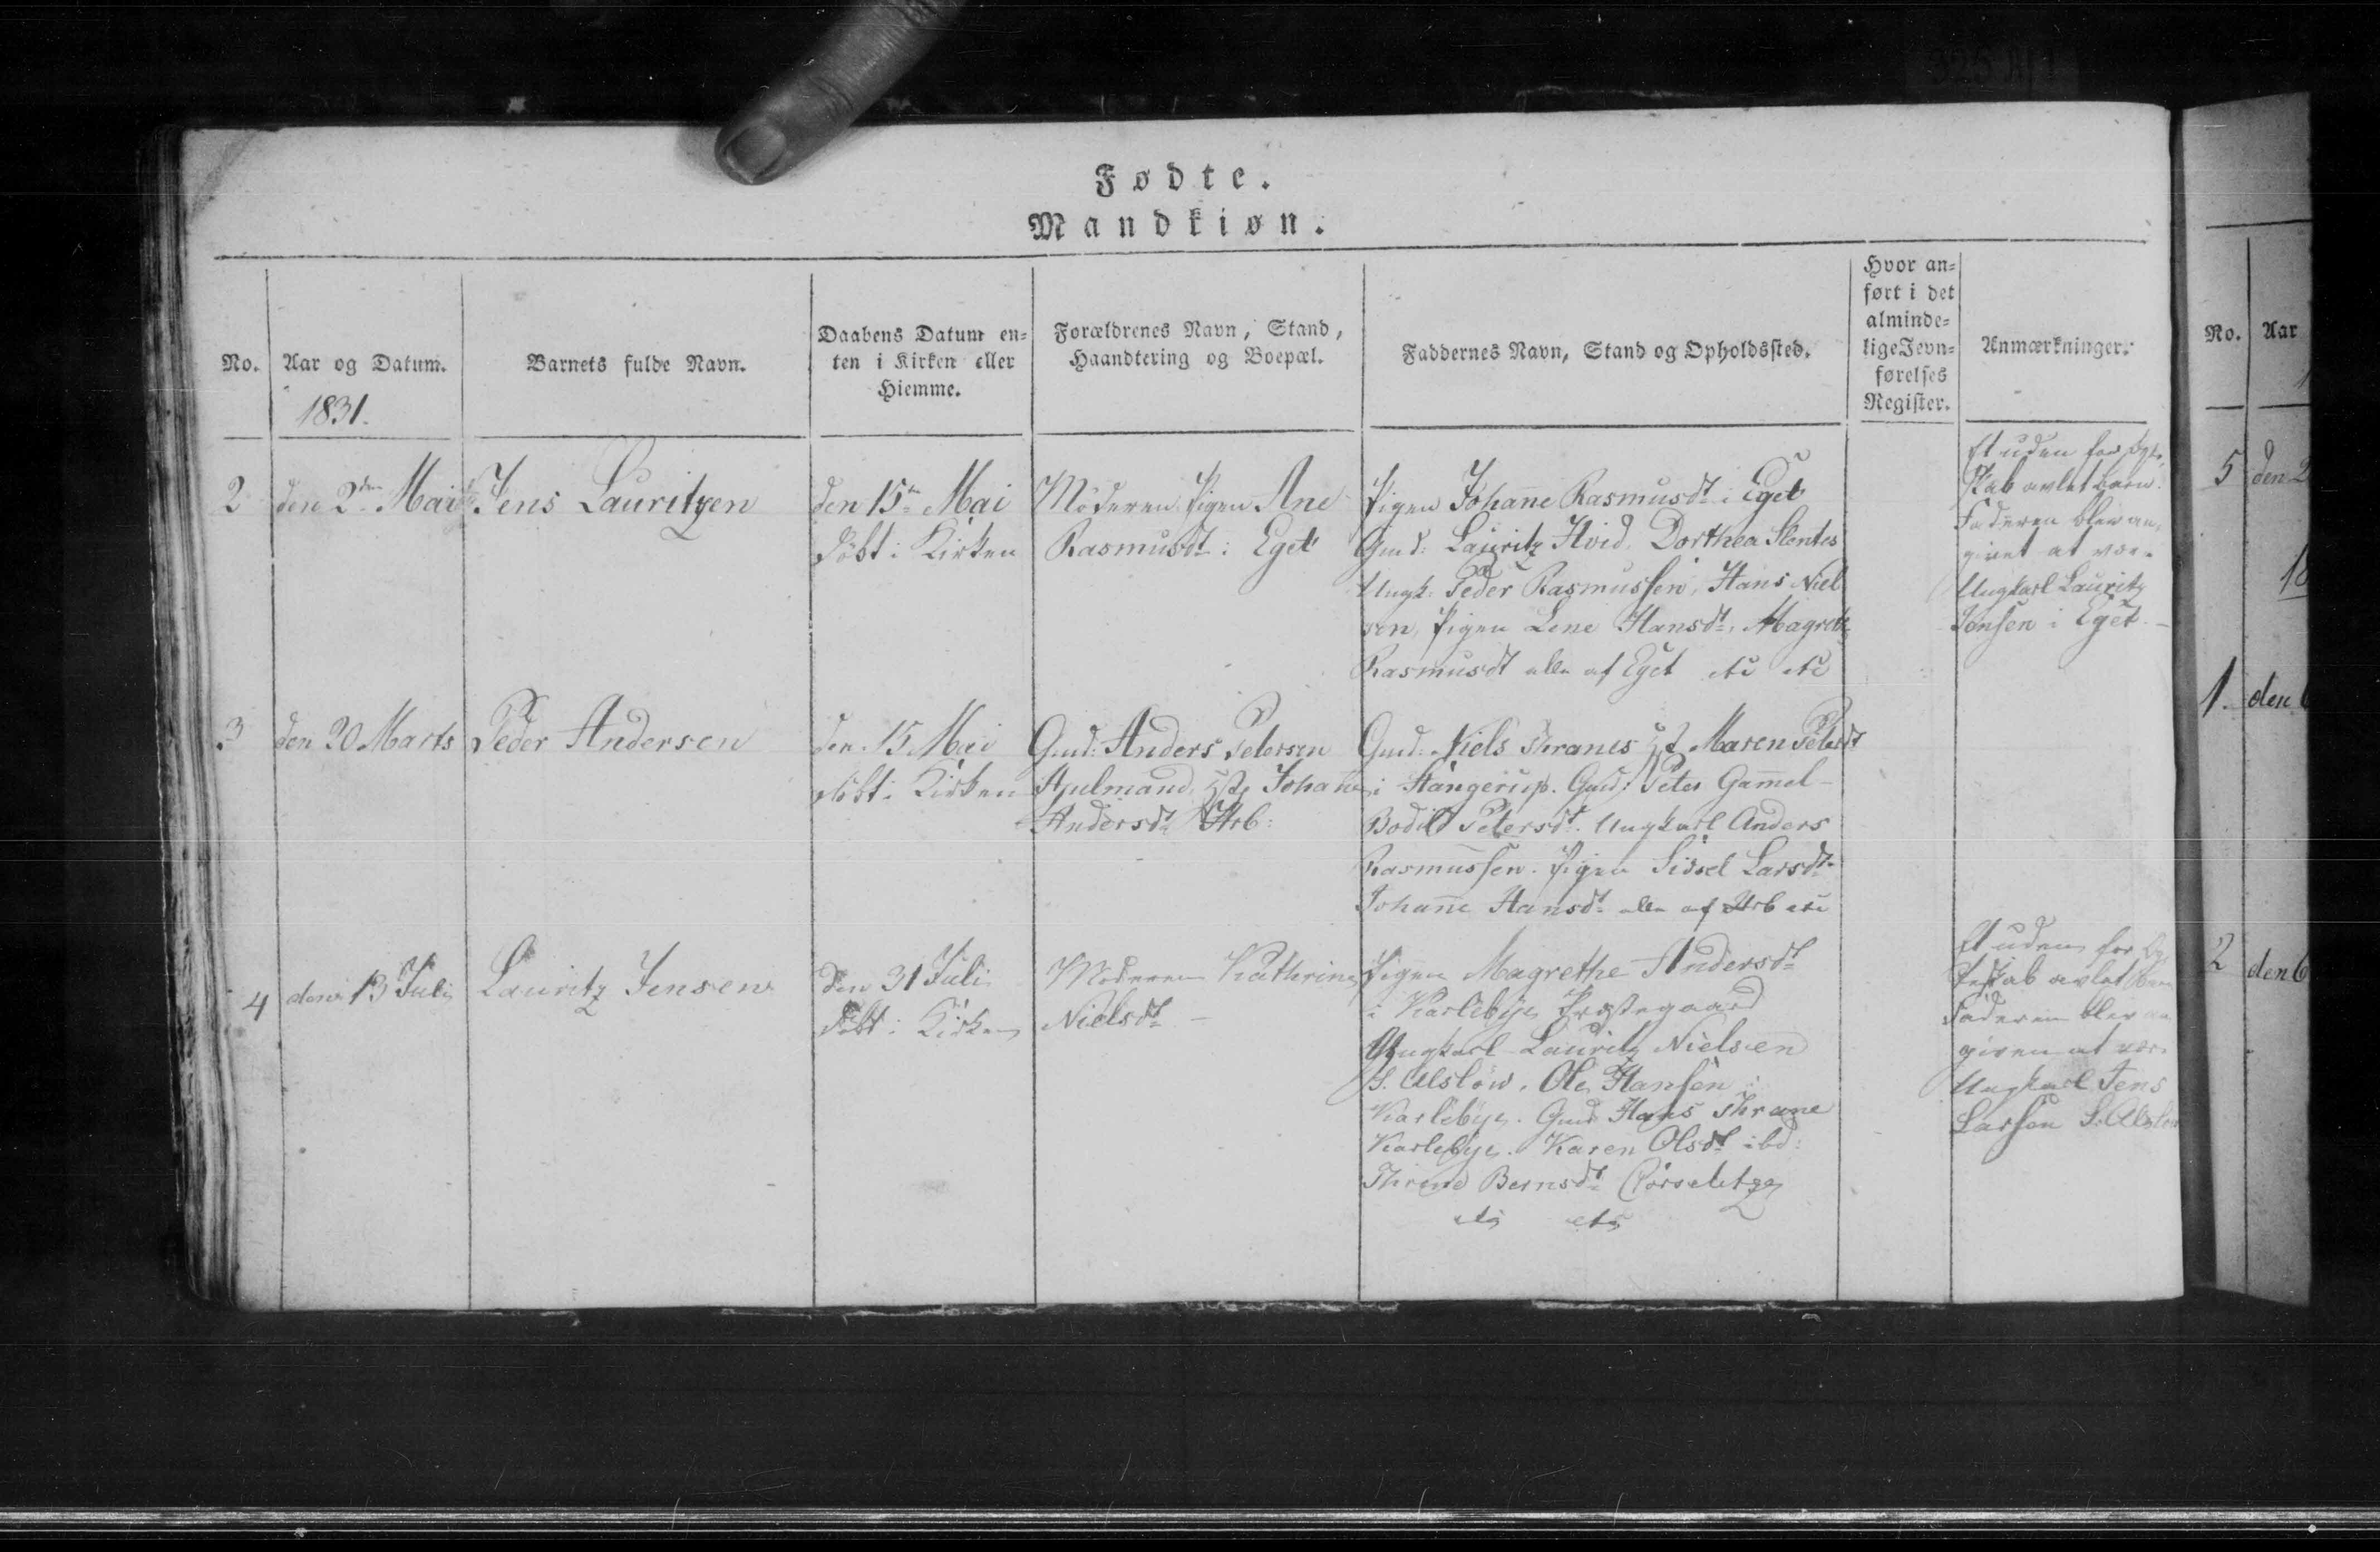 Fødte.
Mandkiøn.
No.
Aar og Datum.
1831.
Barnets fulde Navn.
Daabens Datum en-
ten i Kirken eller
Hiemme.
Forældrenes Navn, Stand,
Haandtering og Boepæl.
Faddernes Navn, Stand og Opholdssted.
Hvor an-
ført i det
alminde-
lige Jevn-
førelses
Register.
Anmærkninger.
2
den 2den Mai
Jens Lauritzen
den 15de Mai
døbt i Kirken
Moderen Pigen Ane
Rasmusdt i Eget
Pigen Johane Rasmusdt i Eget
Gmd: Lauritz Hvid, Dorthea
Ungk: Peder Rasmussen, Hans Niel
sen, Pigen Lene Hansdt, Magrete
Rasmusdt alle af Eget etc etc
Et uden for Ægte-
skab avlet barn.
Faderen blev an-
givet at være
Ungkarl Lauritz
Jensen i Eget.
3
den 20 Marts
Peder Andersen
den 15 Mai
døbt i Kirken
Gmd: Anders Petersen
Hjulmand Johane
Andersdt
Gmd: Niels Maren Petersdt
i Stangerup. Gmd: Peter Gammel
Bodil Petersdt. Ungkarl Anders
Rasmussen. Pigen Sidsel Larsdt
Johane Hansdt alle af etc
4
den 13 Juli
Lauritz Jensen
den 31 Juli
døbt i Kirken
Moderen Kathrine
Nielsdt
Pigen Magrethe Andersdt
i Karlebye Præstegaard
Ungkarl Lauritz Nielsen
S. Alslöw, Ole Hansen i
Karlebye. Gmd Hans Thrane
Karlebye. Karen Olsdt ibd:
Bernsdt Corselitze
etc etc
Et uden for Æg-
teskab avlet barn
Faderen blev an
given at være
Ungkarl Jens
Larsen S. Alslöw
No.
Aar
5
den 2
1.
den 6
2
den 6